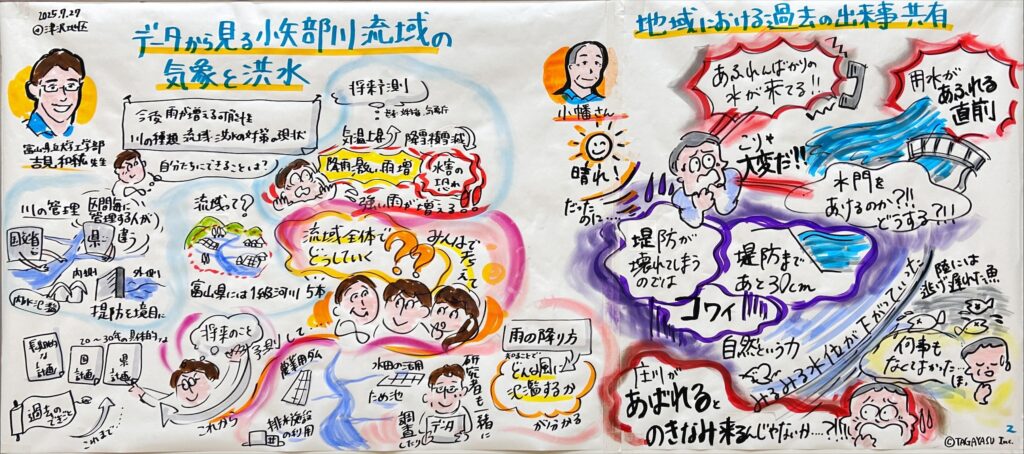 2025.9.27
@津沢地区
データから見る小矢部川流域の
気象と洪水
富山県立大学工学部
吉見和紘先生
今後雨が増える可能性を
川の種類 流域・洪水の対策の現状
自分たちにできることは?
将来予測
気温上昇 降雪積雪減
降雨激しい雨増
水害の恐れ
強い雨が増える!!
川の管理
区間毎に
管理する人が
違う
国交省
県
内側
外側
内水氾濫
堤防を境目に
流域って?
富山県には1級河川5本
流域全体で
どうしていく
???
みんなで
考えて
長期的な
計画
20~30年の具体的な
国
計画
県
計画
過去の
できごと
これまで…
将来のこと
これから
農業用ダム
排水施設
の利用
水田の活用
ため池
調査
したり
データ
研究者も
一緒に
雨の降り方
どんな風に
氾濫するか
が分かる
地域における過去の出来事共有
小幡さん
晴れ!
だった
のに…
あふれんばかりの
水が来てる!!
用水が
あふれる
直前
こりゃ
大変だ!!
水門を
あけるのか?!!
どうする?!!
堤防が
壊れてしまう
のでは
堤防まで
あと30cm
コワイ
自然という力
みるみる水位が下がっていった
陸には
逃げ遅れた魚
何事も
なくてよかった…
庄川が
あばれると
のきなみ来るんじゃないか…?!!!
2
©TAGAYASU Inc.